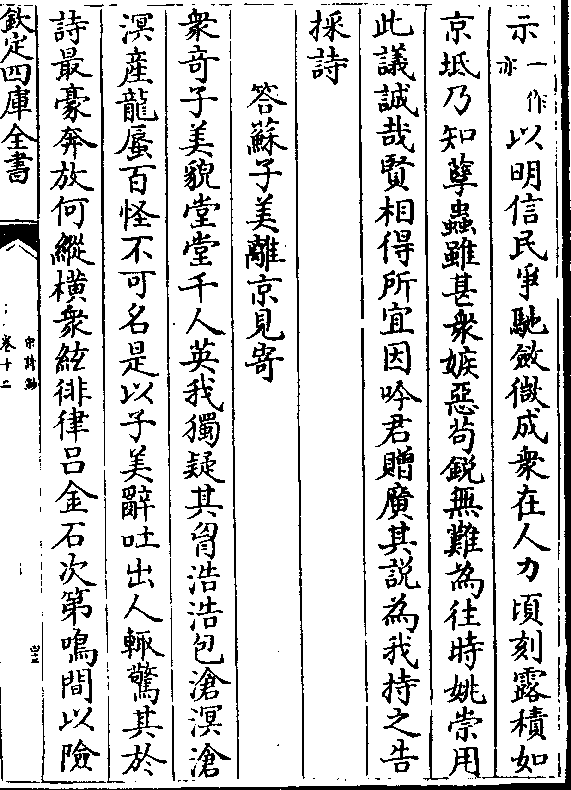 示一作亦以明信民爭馳斂微成衆在人力頃刻露積如
京坻乃知孽蟲雖甚衆嫉惡茍鋭無難為往時姚崇用
此議誠哉賢相得所宜因吟君贈廣其説為我持之告
採詩
答蘇子美離京見寄
衆竒子美貌堂堂千人英我獨疑其胷浩浩包滄溟滄
溟産龍蜃百怪不可名是以子美辭吐出人輒驚其於
詩最豪奔放何縱横衆絃徘律吕金石次第鳴間以險
欽定四庫全書
宋詩鈔
卷十二